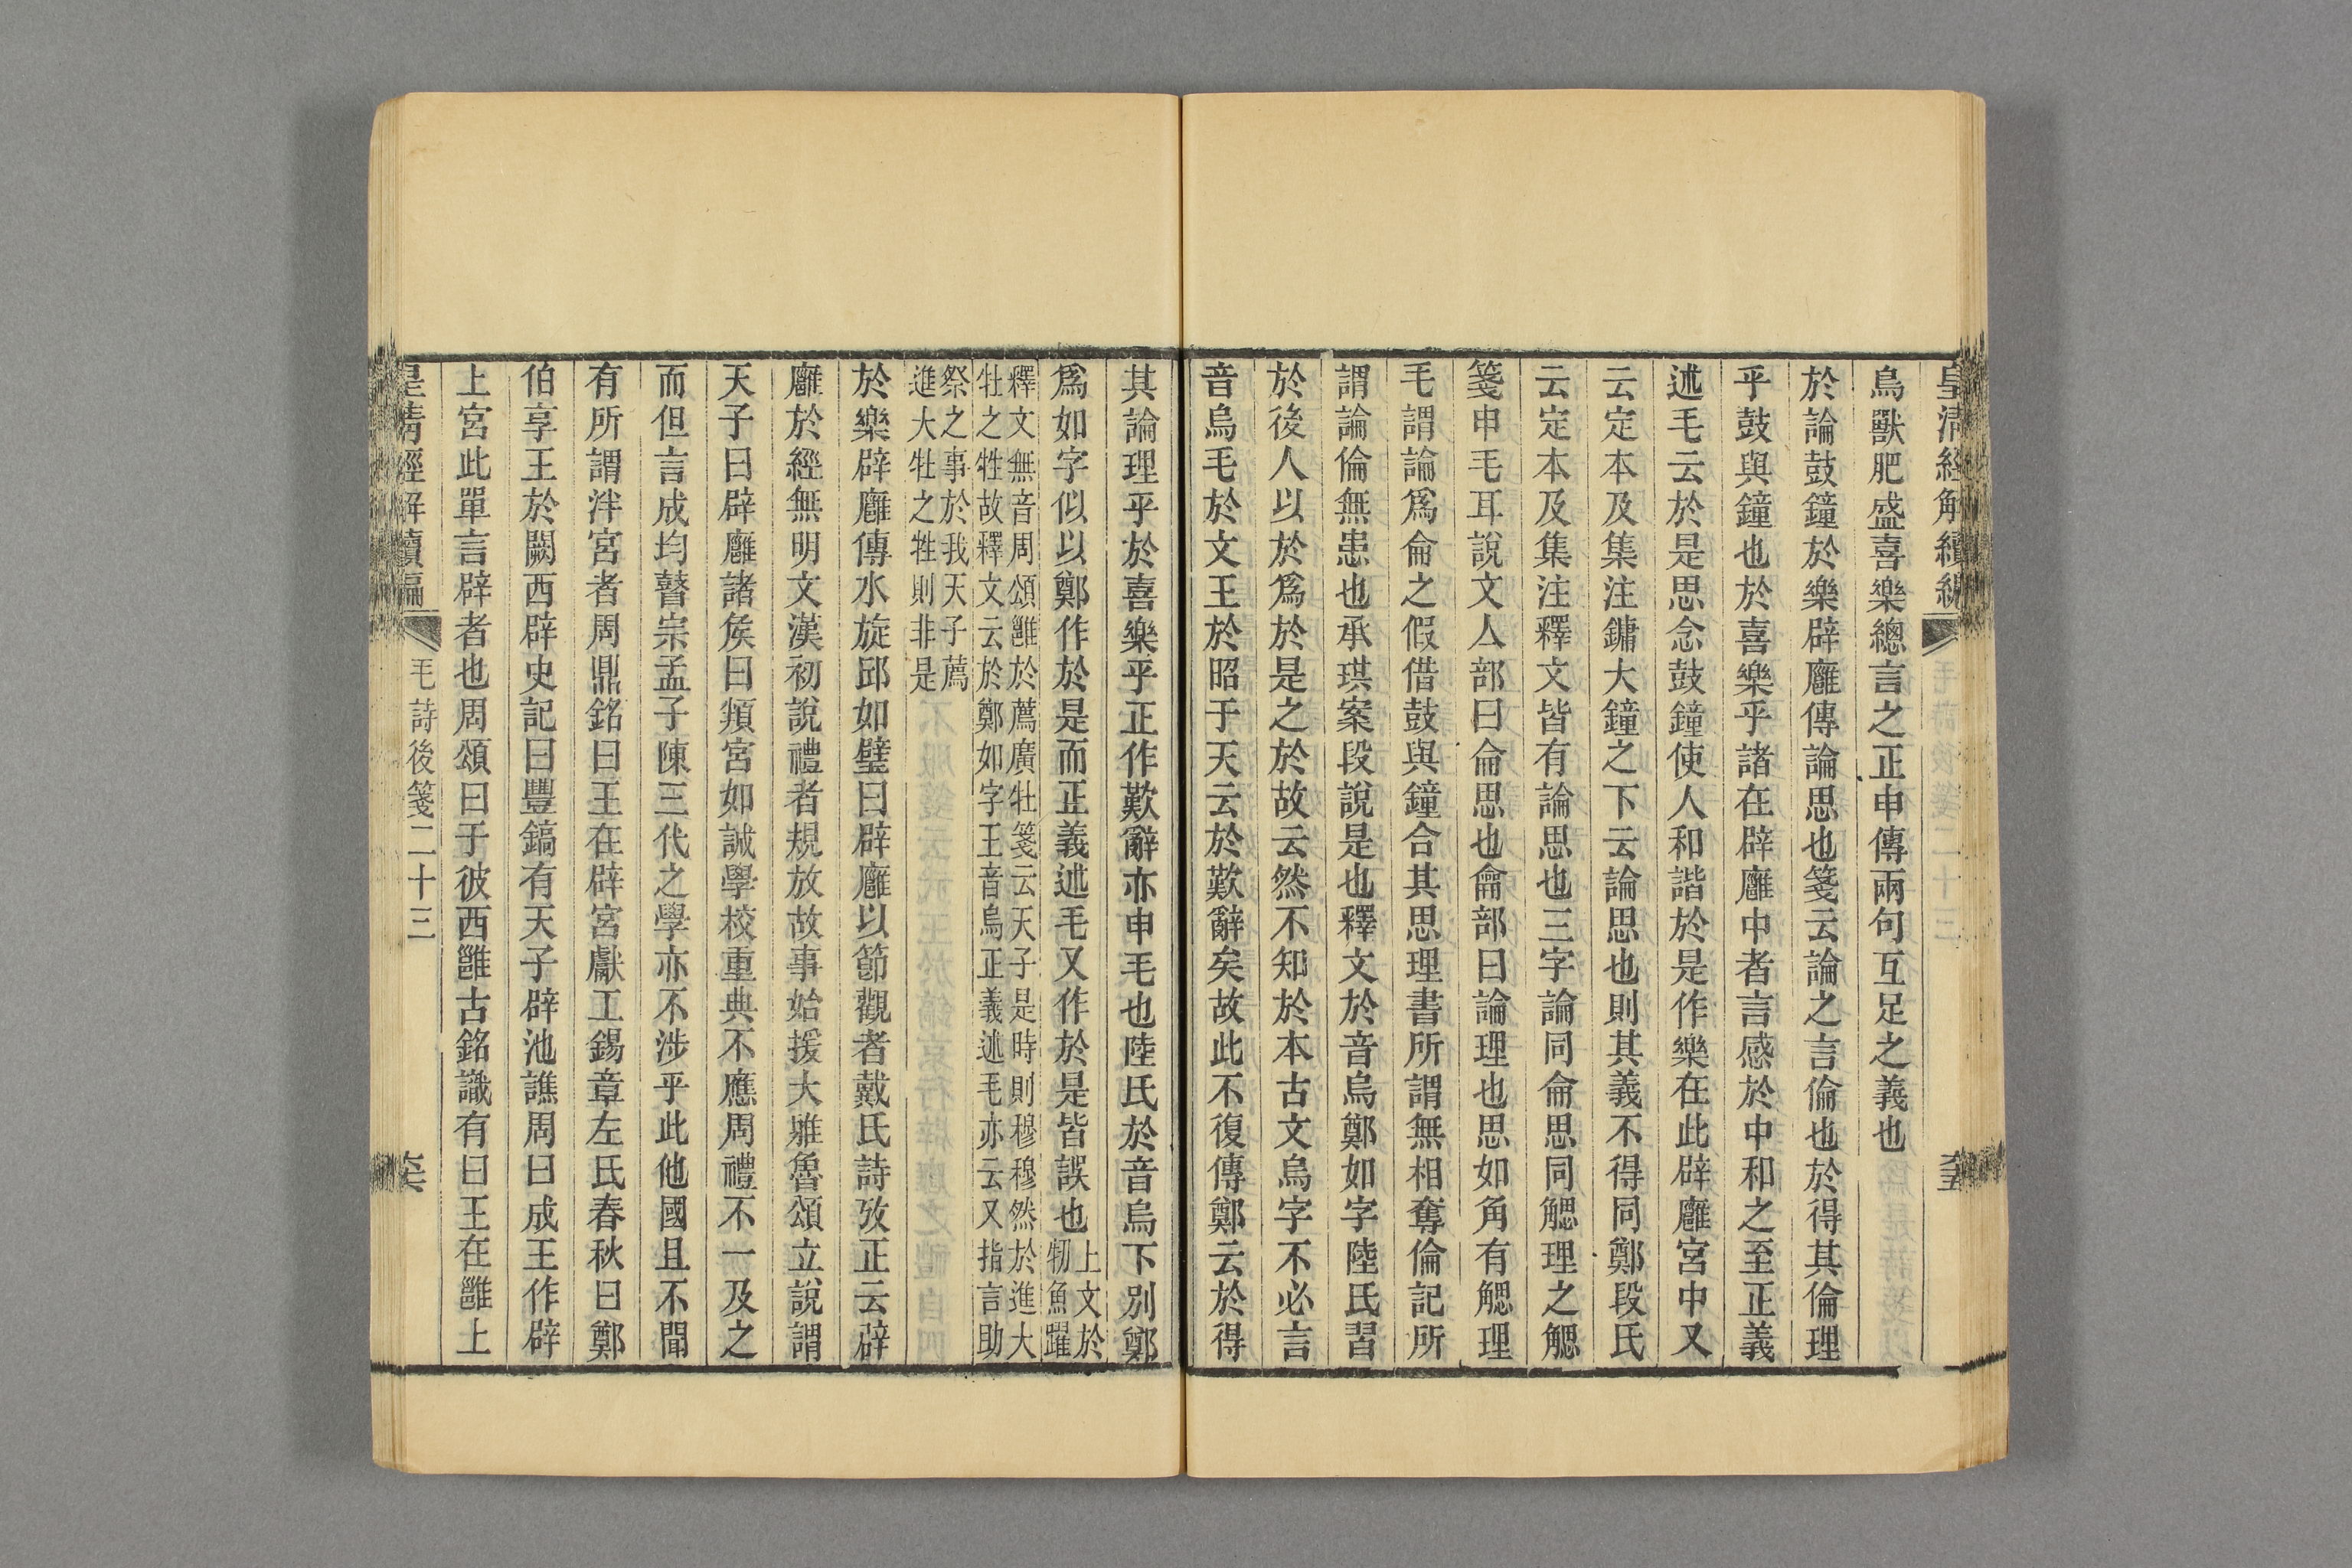 皇清經解續編
鳥獸肥盛喜樂總言之正申傳兩句互足之義也
於論鼓鐘於樂辟廱傳論思也箋云論之言倫也於得其倫理
乎鼓與鐘也於喜樂乎諸在辟廱中者言感於中和之至正義
述毛云於是思念鼓鐘使人和諧於是作樂在此辟廱宮中又
云定本及集注鏞大鐘之下云論思也則其義不得同鄭段氏
云定本及集注釋文皆有論思也三字論同侖思同䚡理之䚡
箋申毛耳說文亼部曰侖思也龠部曰論理也思如角有䚡理
毛謂論爲侖之假借鼓與鐘合其思理書所謂無相奪倫記所
謂論倫無患也承珙案段說是也釋文於音烏鄭如字陸氏習
於後人以於爲於是之於故云然不知於本古文烏字不必言
音烏毛於文王於昭于天云於歎辭矣故此不復傳鄭云於得
其論理乎於喜樂乎正作歎辭亦申毛也陸氏於音烏下別鄭
爲如字似以鄭作於是而正義述毛又作於是皆誤也上文於牣魚躍
釋文無音周頌雝於薦廣牡箋云天子是時則穆穆然於進大
牡之牲故釋文云於鄭如字王音烏正義述毛亦云又指言助
祭之事於我天子薦
進大牡之牲則非是
於樂辟廱傳水旋邱如璧曰辟廱以節觀者戴氏詩攷正云辟
廱於經無明文漢初說禮者規放故事始援大雅魯頌立說謂
天子曰辟廱諸矦曰頖宮如誠學校重典不應周禮不一及之
而但言成均瞽宗孟子陳三代之學亦不涉乎此他國且不聞
有所謂泮宮者周鼎銘曰王在辟宮獻工錫章左氏春秋曰鄭
伯享王於闕西辟史記曰豐鎬有天子辟池譙周曰成王作辟
上宮此單言辟者也周頌曰于彼西雝古銘識有曰王在雝上
皇清經解續編
毛詩後箋二十三